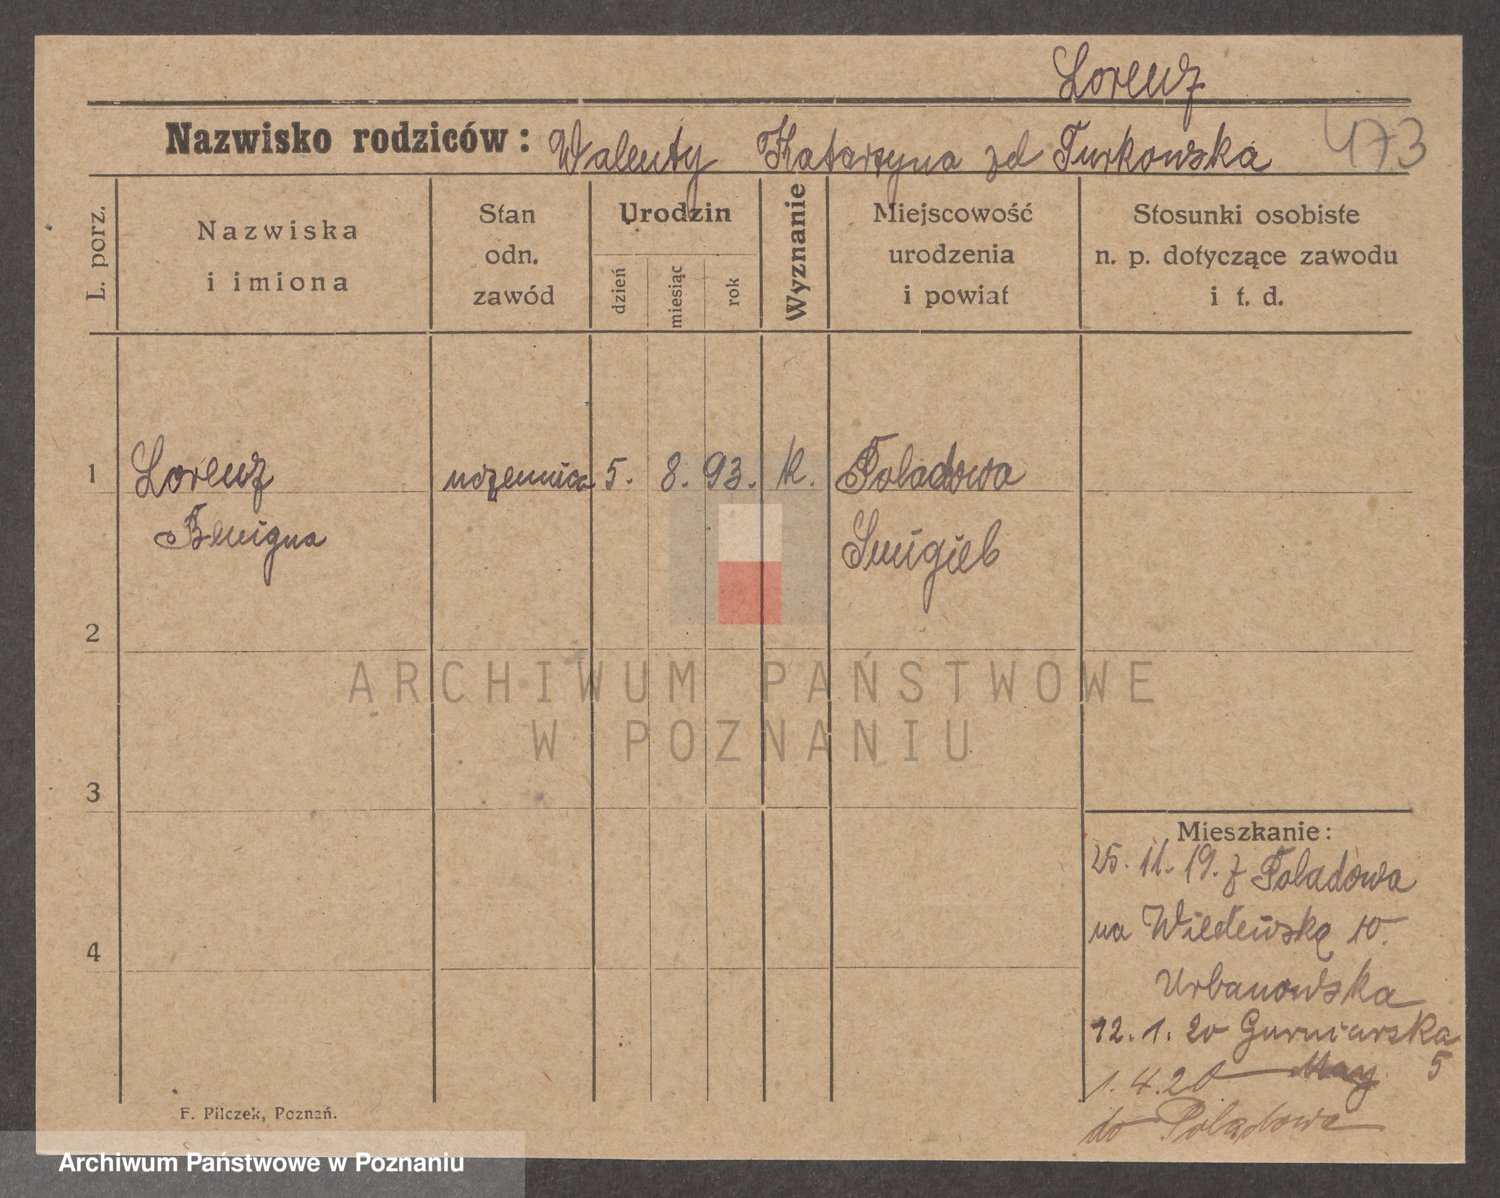 Lorenz
Nazwisko rodziców: Walenty Katarzyna zd Turkowska 473
L. porz.
Nazwiska
i imiona
Stan
odn.
zawód
Urodzin
dzień
miesiąc
rok
Wyznanie
Miejscowość
urodzenia
i powiat
Stosunki osobiste
n. p. dotyczące zawodu
i t. d.
1 Lorenz uczennica 5. 8. 93. k. Poladowa
Benigna Smigiel
2
ARCHIWUM PAŃSTWOWE
W POZNANIU
3
Mieszkanie:
25. 11. 19. z Poladowa
na 10.
4
Urbanowska
12. 1. 20 5
1. 4. 20
do Poladowa
F. Pilczek, Poznań.
Archiwum Państwowe w Poznaniu